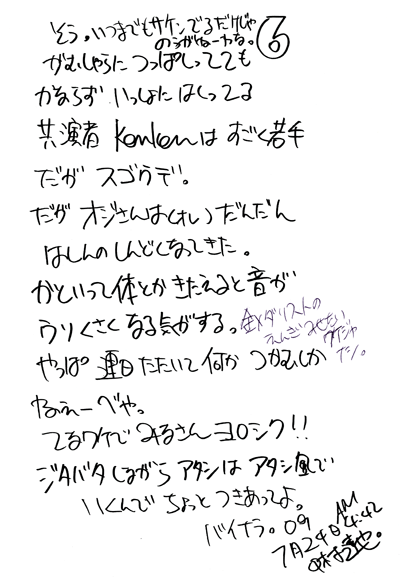 そう。いつまでもサケンでるだけじゃ
のうがねーわな。⑥
がむしゃらに つっぱしってても
かならず いっしょに はしってる
共演者 KenKenは すごく若手
だが スゴウデ。
だが オジさんは(オレ) だんだん
はしんの しんどくなってきた。
かといって体とか きたえると 音が
ウソくさく なる気がする。
金メダリストの
えんぎ みせたい
ワケじゃ
ない。
やっぱ 連日 たたいて 何か つかむしか
ねぇーべや。
てるワケで みるさん ヨロシク!!
ジタバタしながら アタシは アタシ風で
いくんで ちょっと つきあってよ。
バイナラ。09
7月24日 AM
4:42